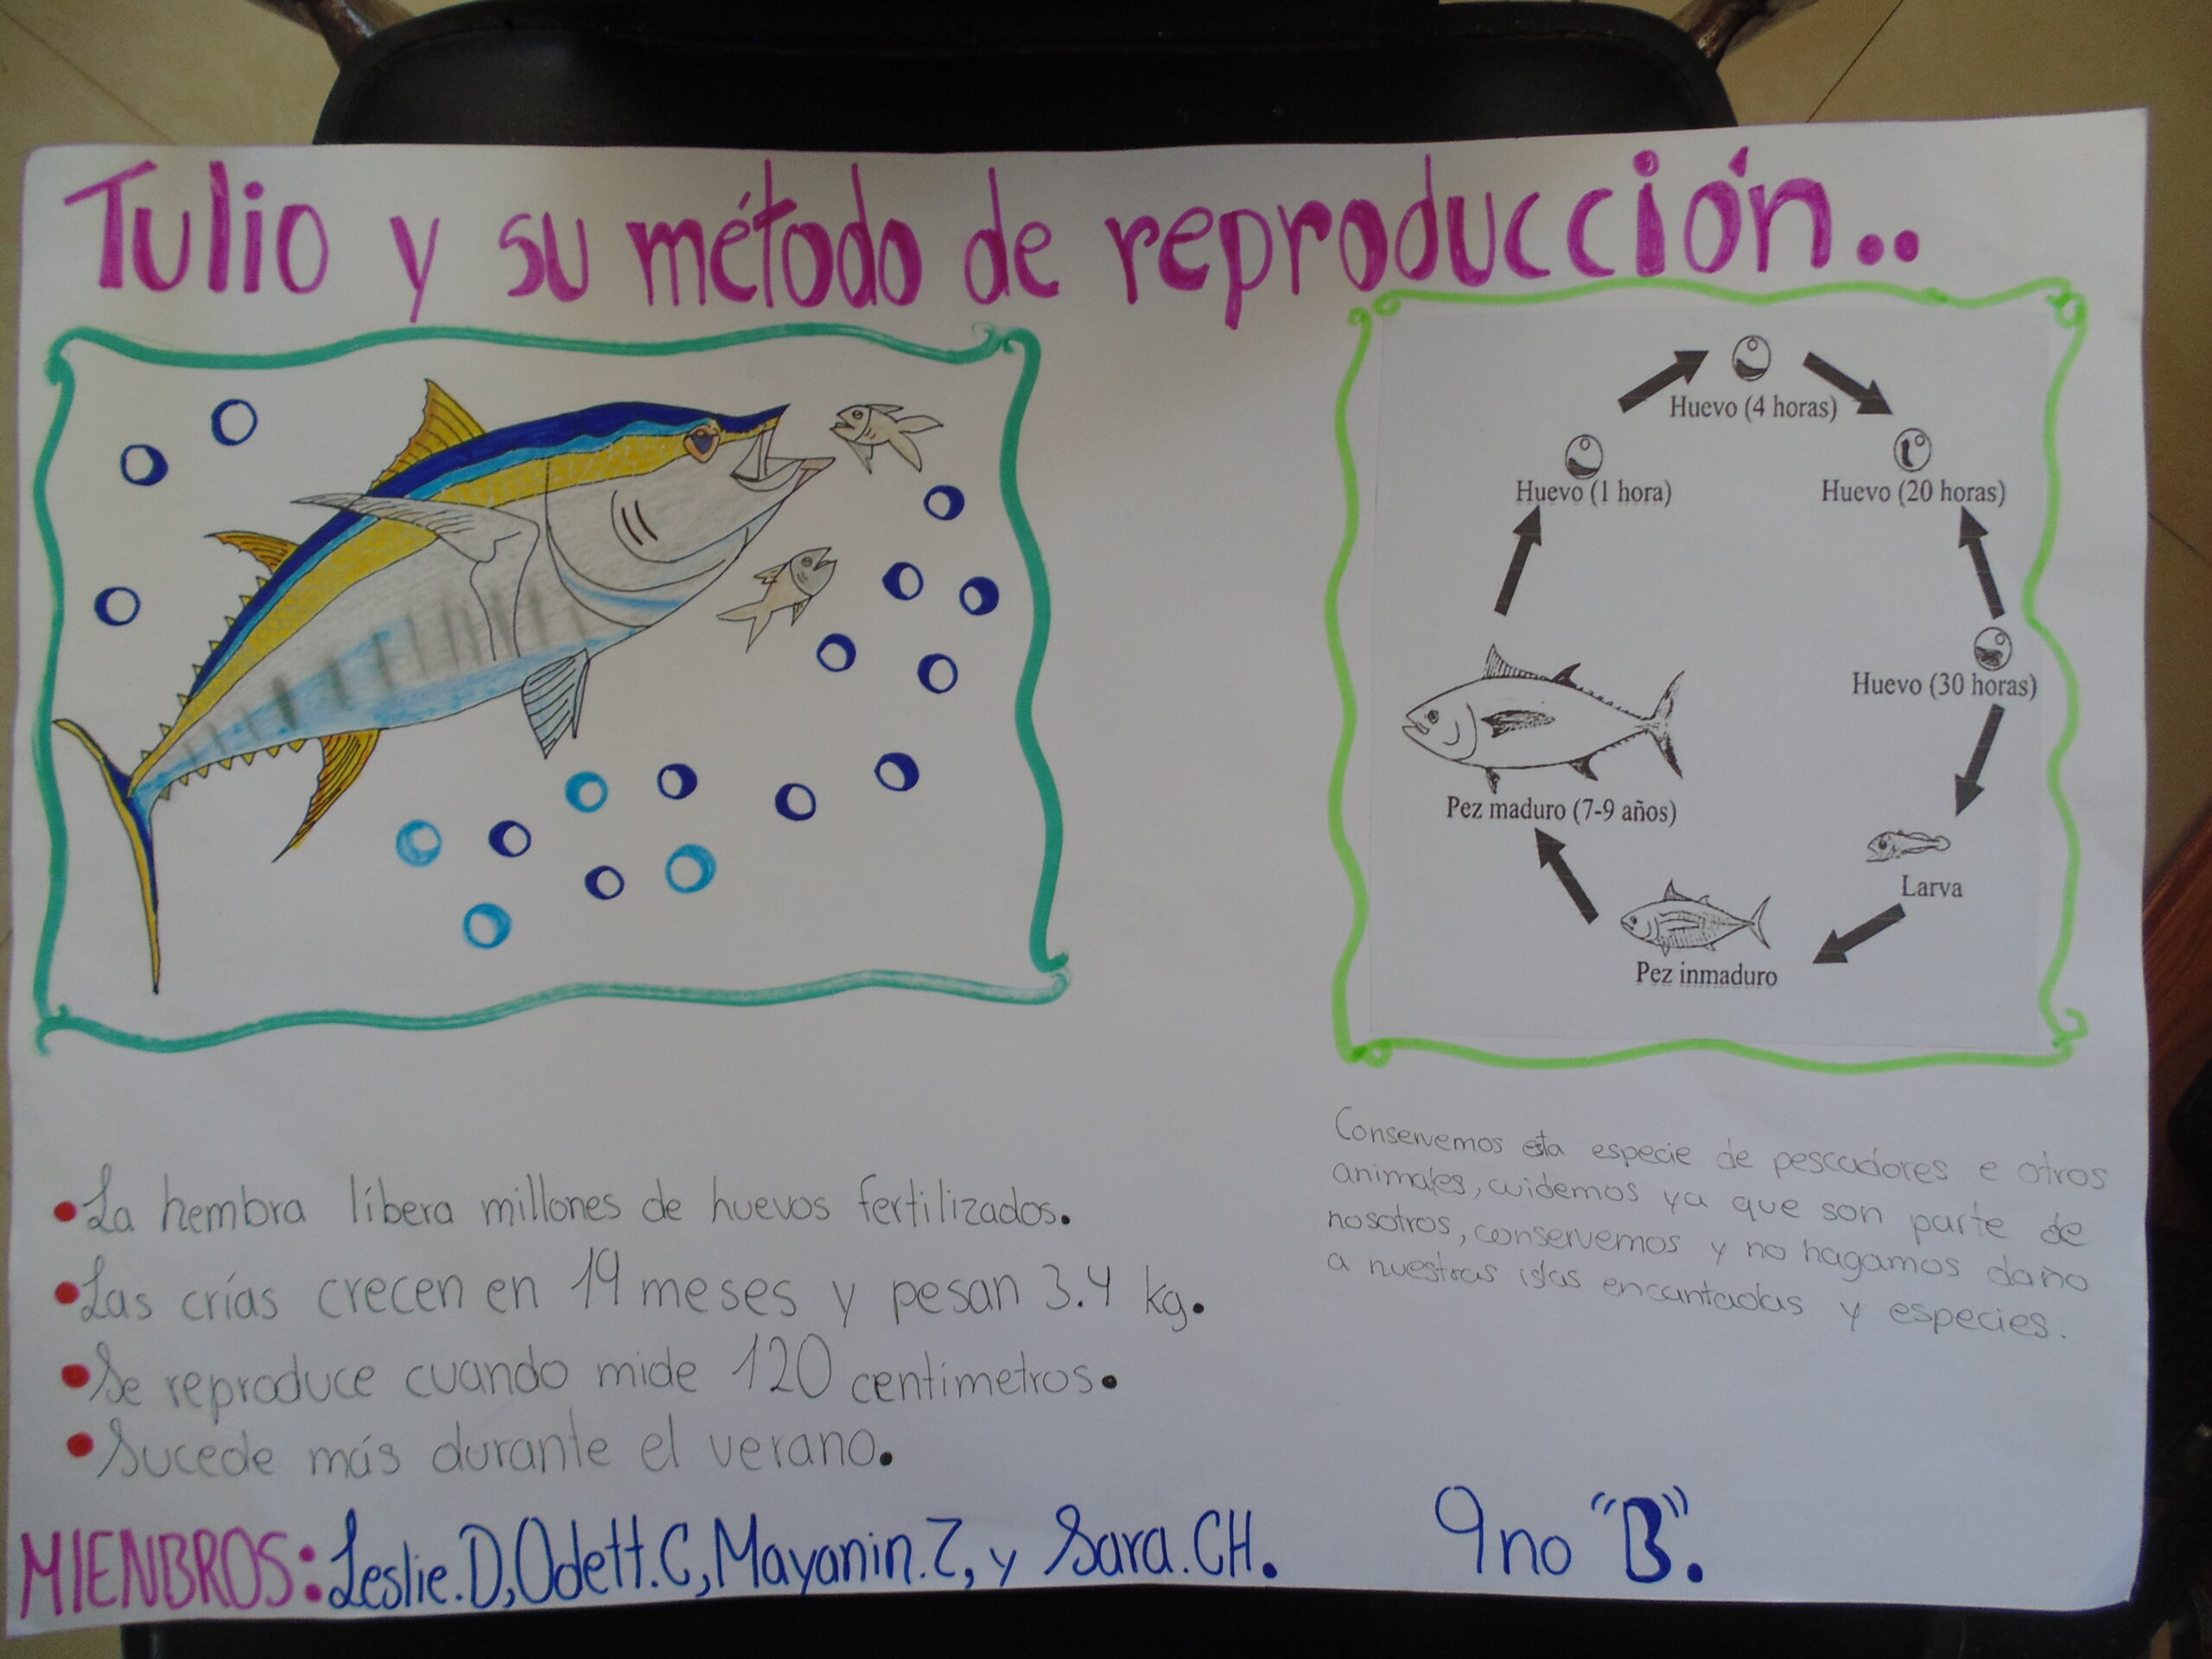 Tulio y su método de reproducción..
Huevo (4 horas)
Huevo (1 hora)
Huevo (20 horas)
Huevo (30 horas)
Pez maduro (7-9 años)
Larva
Pez inmaduro
Conservemos esta especie de pescadores e otros
animales, cuidemos ya que son parte de
nosotros, conservemos y no hagamos daño
a nuestras islas encantadas y especies.
•La hembra libera millones de huevos fertilizados.
•Las crías crecen en 19 meses y pesan 3.4 kg.
•Se reproduce cuando mide 120 centímetros.
•Sucede más durante el verano.
MIENBROS: Leslie.D, Odett.C, Mayanin.Z, y Sara.CH. 9no "B".